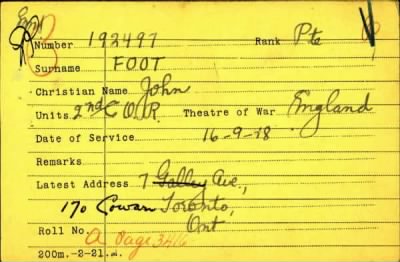 Number 192497 Rank Pte
Surname FOOT
Christian Name John
Units 2nd C.O.R. Theatre of War England
Date of Service 16-9-18
Remarks
Latest Address 7 Galley Ave.,
170 Cowan Toronto,
Ont
Roll No. A Page 3416
200m.-2-21.